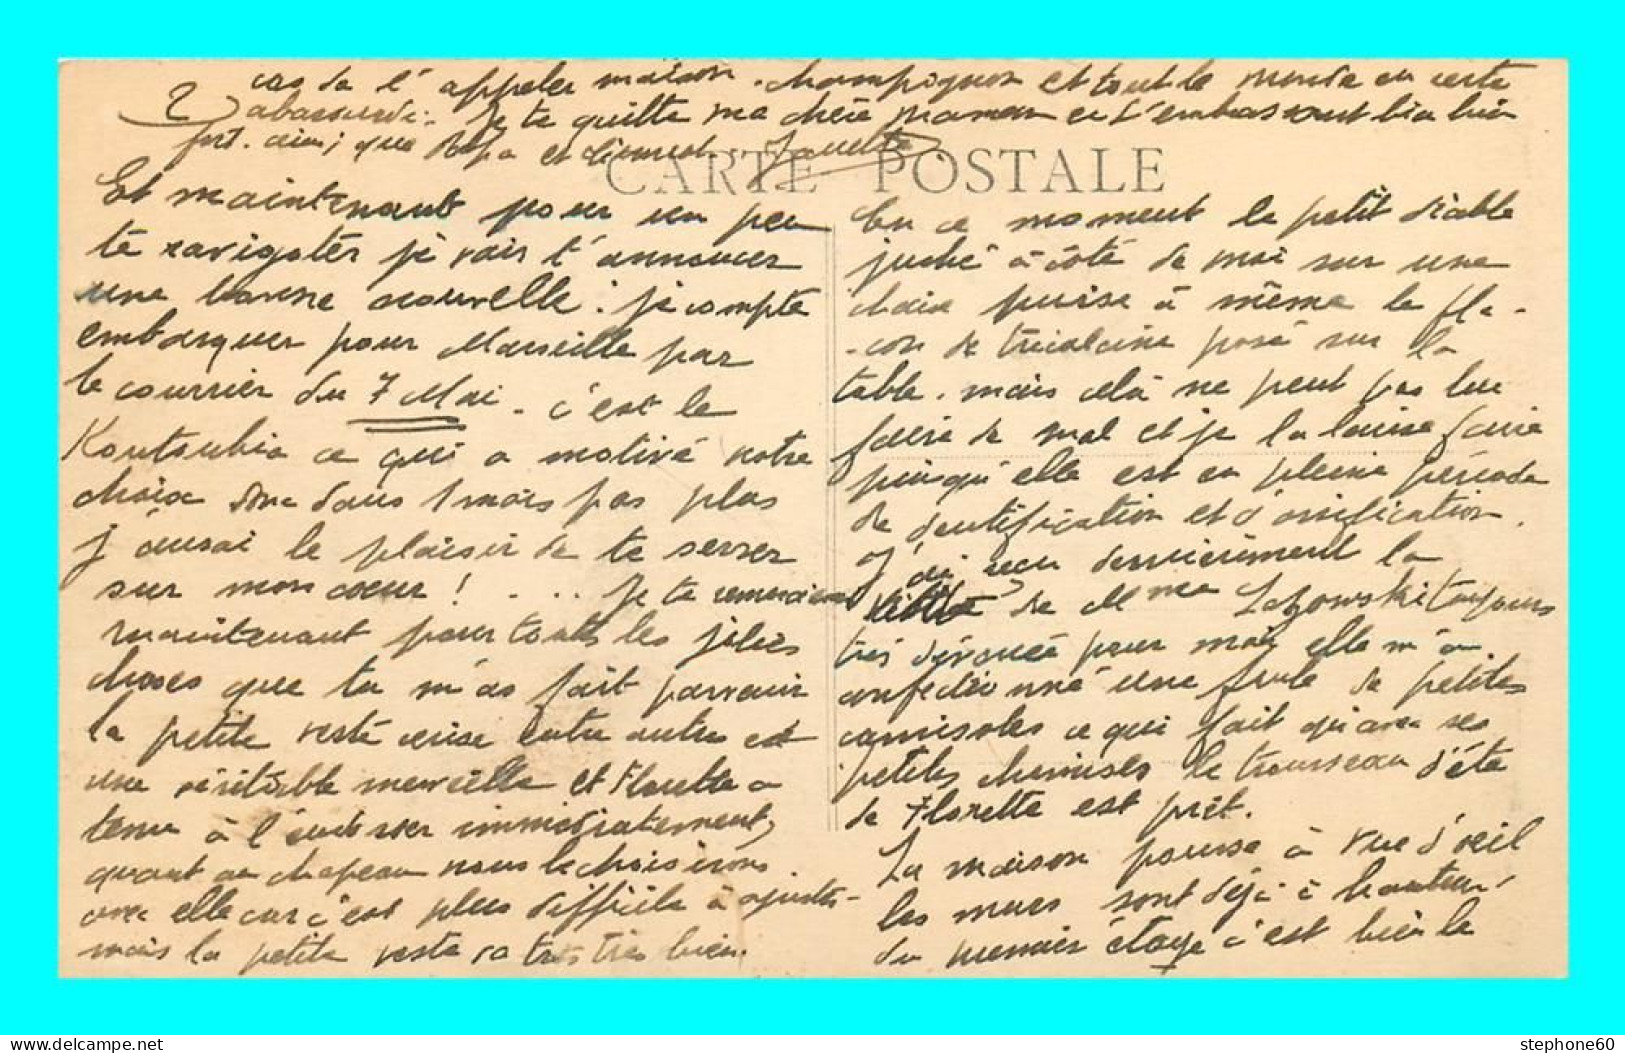 cas de l'appeler maison champignon et tout le monde en reste
2 abasourdi. Je te quitte ma chère maman en t'embrassant bien bien
fort. ainsi que Papa et Clément.
CARTE POSTALE
Et maintenant pour un peu
te ravigoter je vais t'annoncer
une bonne nouvelle : je compte
embarquer pour Marseille par
le courrier du 7 Mai. c'est le
Koutoubia ce qui a motivé notre
choix donc dans 1 mois pas plus
j'aurai le plaisir de te serrer
sur mon coeur ! - .. Je te remercie
maintenant pour toutes les jolies
choses que tu m'as fait parvenir
la petite veste cerise entre autres est
une véritable merveille et Florette a
tenu à l'endosser immédiatement,
quant au chapeau nous le choisirons
avec elle car c'est plus difficile à ajuster
mais la petite veste va très très bien.
En ce moment le petit diable
juché à côté de moi sur une
chaise puise à même le fla-
-con de tricalcine posé sur la
table. mais cela ne peut pas lui
faire de mal et je la laisse faire
puisqu'elle est en pleine période
de dentification et d'ossification.
J'ai reçu dernièrement la
visite de Mme Lazowski toujours
très dévouée pour moi, elle m'a
confectionné une foule de petites
camisoles ce qui fait qu'avec ses
petites chemises le trousseau d'été
de Florette est prêt.
La maison pousse à vue d'oeil
les murs sont déjà à hauteur
du premier étage c'est bien le
stephone60